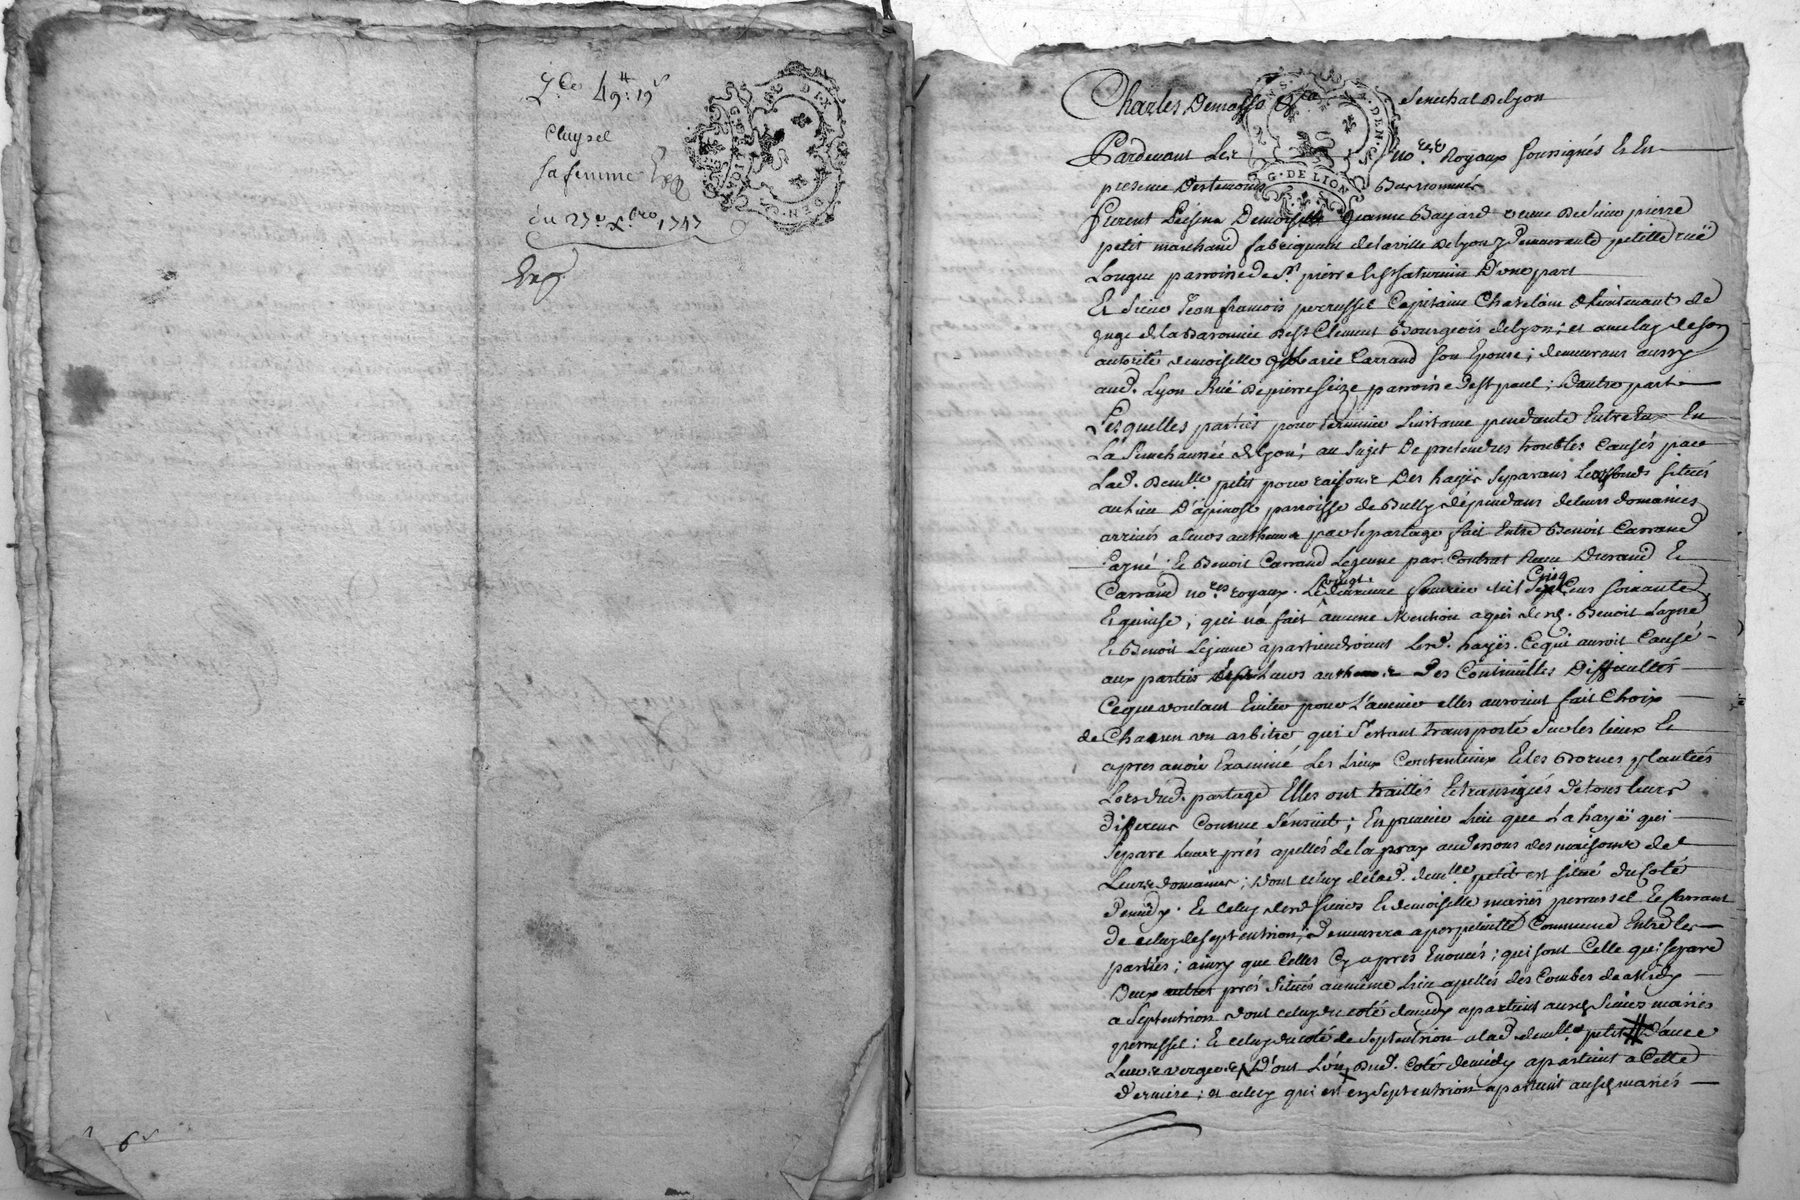 49ᵗᵗ: 19ˢ
Clapel
Sa femme
du 27e xbre 1757
GE. DIX DEN.
6s
Charles Demasso &ca Senechal de Lyon
G. DE LION
DEN.
Pardevant Les nores Royaux Soussignés et En
presence Des temoins Bas nommés
Furent presens Demoiselle Jeanne Bayard veuve De Sieur pierre
petit marchand fabriquant de la ville de Lyon y Demeurante petitte ruë
Longue parroisse de St pierre et St Saturnin D'une part
Et Sieur Jean françois perrussel Capitaine Chatelain & lieutenant de
Juge de la Baronnie de St Clement Bourgeois de Lyon; et avec luy de son
autorité demoiselle Marie Carrand son Epouse; demeurans aussy
aud. Lyon Ruë de pierre Seize parroisse de St paul; D'autre part
Lesquelles parties pour terminer L'instance pendante Entre Eux En
La Senechaussée de Lyon; au sujet De pretendus troubles Causés par
Lad. Demlle petit pour raison Des hayes Separans Les fonds situés
au lieu D'apinost parroisse de Bully dépendans de leurs domaines
arrivés a leurs autheurs par le partage fait Entre Benoit Carrand
L'ayné; et Benoit Carrand Le jeune par Contrat Reçu Durand et
Carrand nores royaux. Le vingt deuxieme fevrier mil Six Cens soixante
Cinq
et quinse; qui n'a fait aucune Mention a qui desd. Benoit L'ayné
et Benoit Lejeune apartiendroient Lesd. hayes. Ce qui auroit Causé
aux parties et a Leurs autheurs Des Continuelles Difficultés
Ce que voulant Eviter pour L'avenir elles auroient fait Choix
de Chacun un arbitre qui S'estant transporté Sur les lieux et
apres avoir Examiné Les Lieux Contentieux et les Bornes plantées
Lors dud. partage Elles ont traittés et transigés De tous leurs
differens Comme S'ensuit; En premier Lieu que La haye qui
Separe Leurs prés apellés de la pray au dessous des maisons de
Leurs domaines; Dont celuy de lad. demlle petit est situé du Coté
de midy. et Celuy desd. Sieur et demoiselle mariés perrussel et Carrand
de celuy de septentrion; Demeurera a perpetuité Commune Entre les
parties; ainsy que Celles Cy apres Enoncés; qui sont Celle qui separe
Deux autres prés Situés au même Lieu apellés des Combes de midy
a Septentrion dont celuy du coté de midy apartient auxd. Sieurs mariés
perrussel; et celuy du coté de septentrion a lad. demlle petit D'avec
Leurs vergers D'ont L'un Dud. Coté de midy apartient a Cette
derniere; et celuy qui est en septentrion apartient auxd. mariés